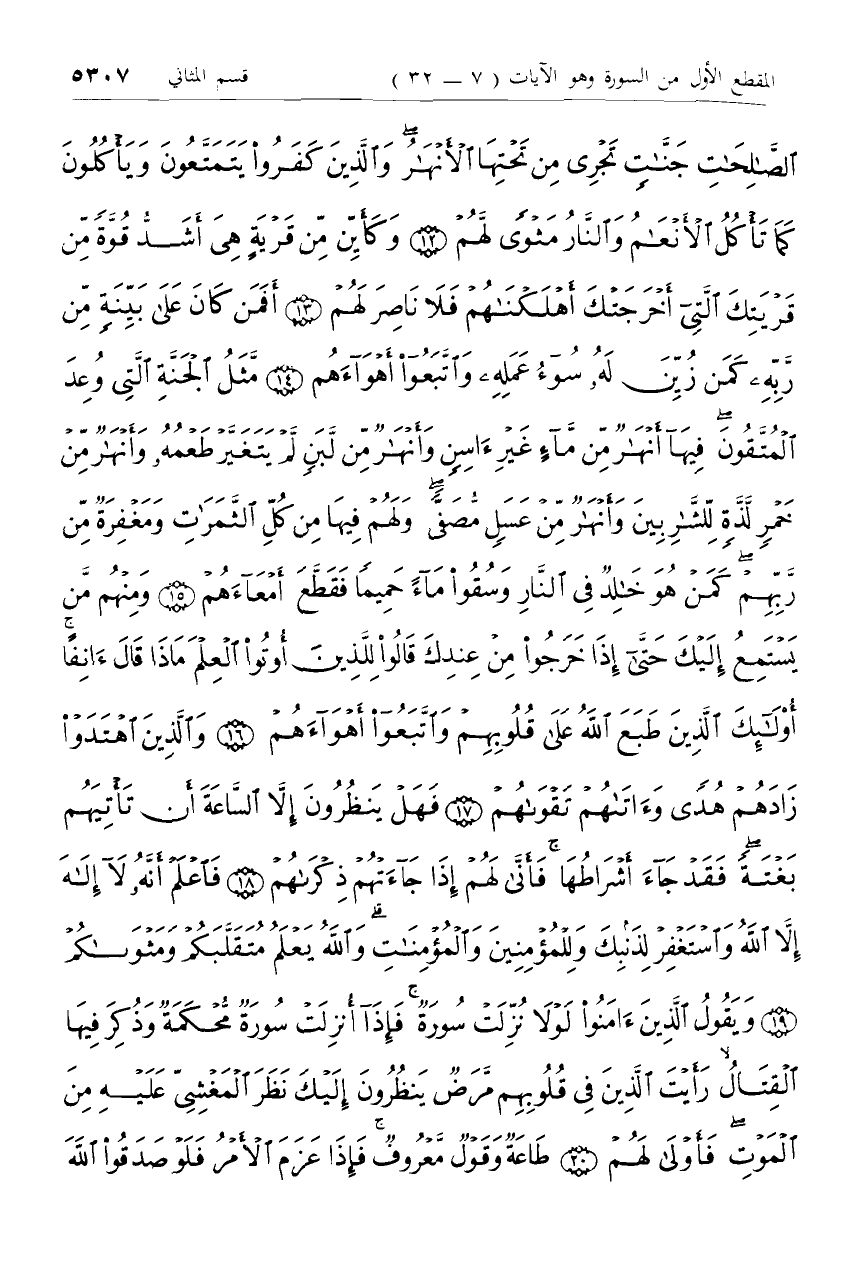 المقطع الأول من السورة وهو الآيات ( ٧ — ٣٢ ) قسم المثاني ٥٣٠٧
ٱلصَّـٰلِحَـٰتِ جَنَّـٰتٍ تَجْرِى مِن تَحْتِهَا ٱلْأَنْهَـٰرُۖ وَٱلَّذِينَ كَفَرُوا۟ يَتَمَتَّعُونَ وَيَأْكُلُونَ
كَمَا تَأْكُلُ ٱلْأَنْعَـٰمُ وَٱلنَّارُ مَثْوًى لَّهُمْ ١٢ وَكَأَيِّن مِّن قَرْيَةٍ هِىَ أَشَدُّ قُوَّةً مِّن
قَرْيَتِكَ ٱلَّتِىٓ أَخْرَجَتْكَ أَهْلَكْنَـٰهُمْ فَلَا نَاصِرَ لَهُمْ ١٣ أَفَمَن كَانَ عَلَىٰ بَيِّنَةٍ مِّن
رَّبِّهِۦ كَمَن زُيِّنَ لَهُۥ سُوٓءُ عَمَلِهِۦ وَٱتَّبَعُوٓا۟ أَهْوَآءَهُم ١٤ مَّثَلُ ٱلْجَنَّةِ ٱلَّتِى وُعِدَ
ٱلْمُتَّقُونَۖ فِيهَآ أَنْهَـٰرٌ مِّن مَّآءٍ غَيْرِ ءَاسِنٍ وَأَنْهَـٰرٌ مِّن لَّبَنٍ لَّمْ يَتَغَيَّرْ طَعْمُهُۥ وَأَنْهَـٰرٌ مِّنْ
خَمْرٍ لَّذَّةٍ لِّلشَّـٰرِبِينَ وَأَنْهَـٰرٌ مِّنْ عَسَلٍ مُّصَفًّىۖ وَلَهُمْ فِيهَا مِن كُلِّ ٱلثَّمَرَٰتِ وَمَغْفِرَةٌ مِّن
رَّبِّهِمْۖ كَمَنْ هُوَ خَـٰلِدٌ فِى ٱلنَّارِ وَسُقُوا۟ مَآءً حَمِيمًا فَقَطَّعَ أَمْعَآءَهُمْ ١٥ وَمِنْهُم مَّن
يَسْتَمِعُ إِلَيْكَ حَتَّىٰٓ إِذَا خَرَجُوا۟ مِنْ عِندِكَ قَالُوا۟ لِلَّذِينَ أُوتُوا۟ ٱلْعِلْمَ مَاذَا قَالَ ءَانِفًاۚ
أُو۟لَـٰٓئِكَ ٱلَّذِينَ طَبَعَ ٱللَّهُ عَلَىٰ قُلُوبِهِمْ وَٱتَّبَعُوٓا۟ أَهْوَآءَهُمْ ١٦ وَٱلَّذِينَ ٱهْتَدَوْا۟
زَادَهُمْ هُدًى وَءَاتَىٰهُمْ تَقْوَىٰهُمْ ١٧ فَهَلْ يَنظُرُونَ إِلَّا ٱلسَّاعَةَ أَن تَأْتِيَهُم
بَغْتَةًۖ فَقَدْ جَآءَ أَشْرَاطُهَاۚ فَأَنَّىٰ لَهُمْ إِذَا جَآءَتْهُمْ ذِكْرَىٰهُمْ ١٨ فَٱعْلَمْ أَنَّهُۥ لَآ إِلَـٰهَ
إِلَّا ٱللَّهُ وَٱسْتَغْفِرْ لِذَنۢبِكَ وَلِلْمُؤْمِنِينَ وَٱلْمُؤْمِنَـٰتِۗ وَٱللَّهُ يَعْلَمُ مُتَقَلَّبَكُمْ وَمَثْوَىٰكُمْ
١٩ وَيَقُولُ ٱلَّذِينَ ءَامَنُوا۟ لَوْلَا نُزِّلَتْ سُورَةٌۚ فَإِذَآ أُنزِلَتْ سُورَةٌ مُّحْكَمَةٌ وَذُكِرَ فِيهَا
ٱلْقِتَالُۙ رَأَيْتَ ٱلَّذِينَ فِى قُلُوبِهِم مَّرَضٌ يَنظُرُونَ إِلَيْكَ نَظَرَ ٱلْمَغْشِىِّ عَلَيْهِ مِنَ
ٱلْمَوْتِۖ فَأَوْلَىٰ لَهُمْ ٢٠ طَاعَةٌ وَقَوْلٌ مَّعْرُوفٌۚ فَإِذَا عَزَمَ ٱلْأَمْرُ فَلَوْ صَدَقُوا۟ ٱللَّهَ